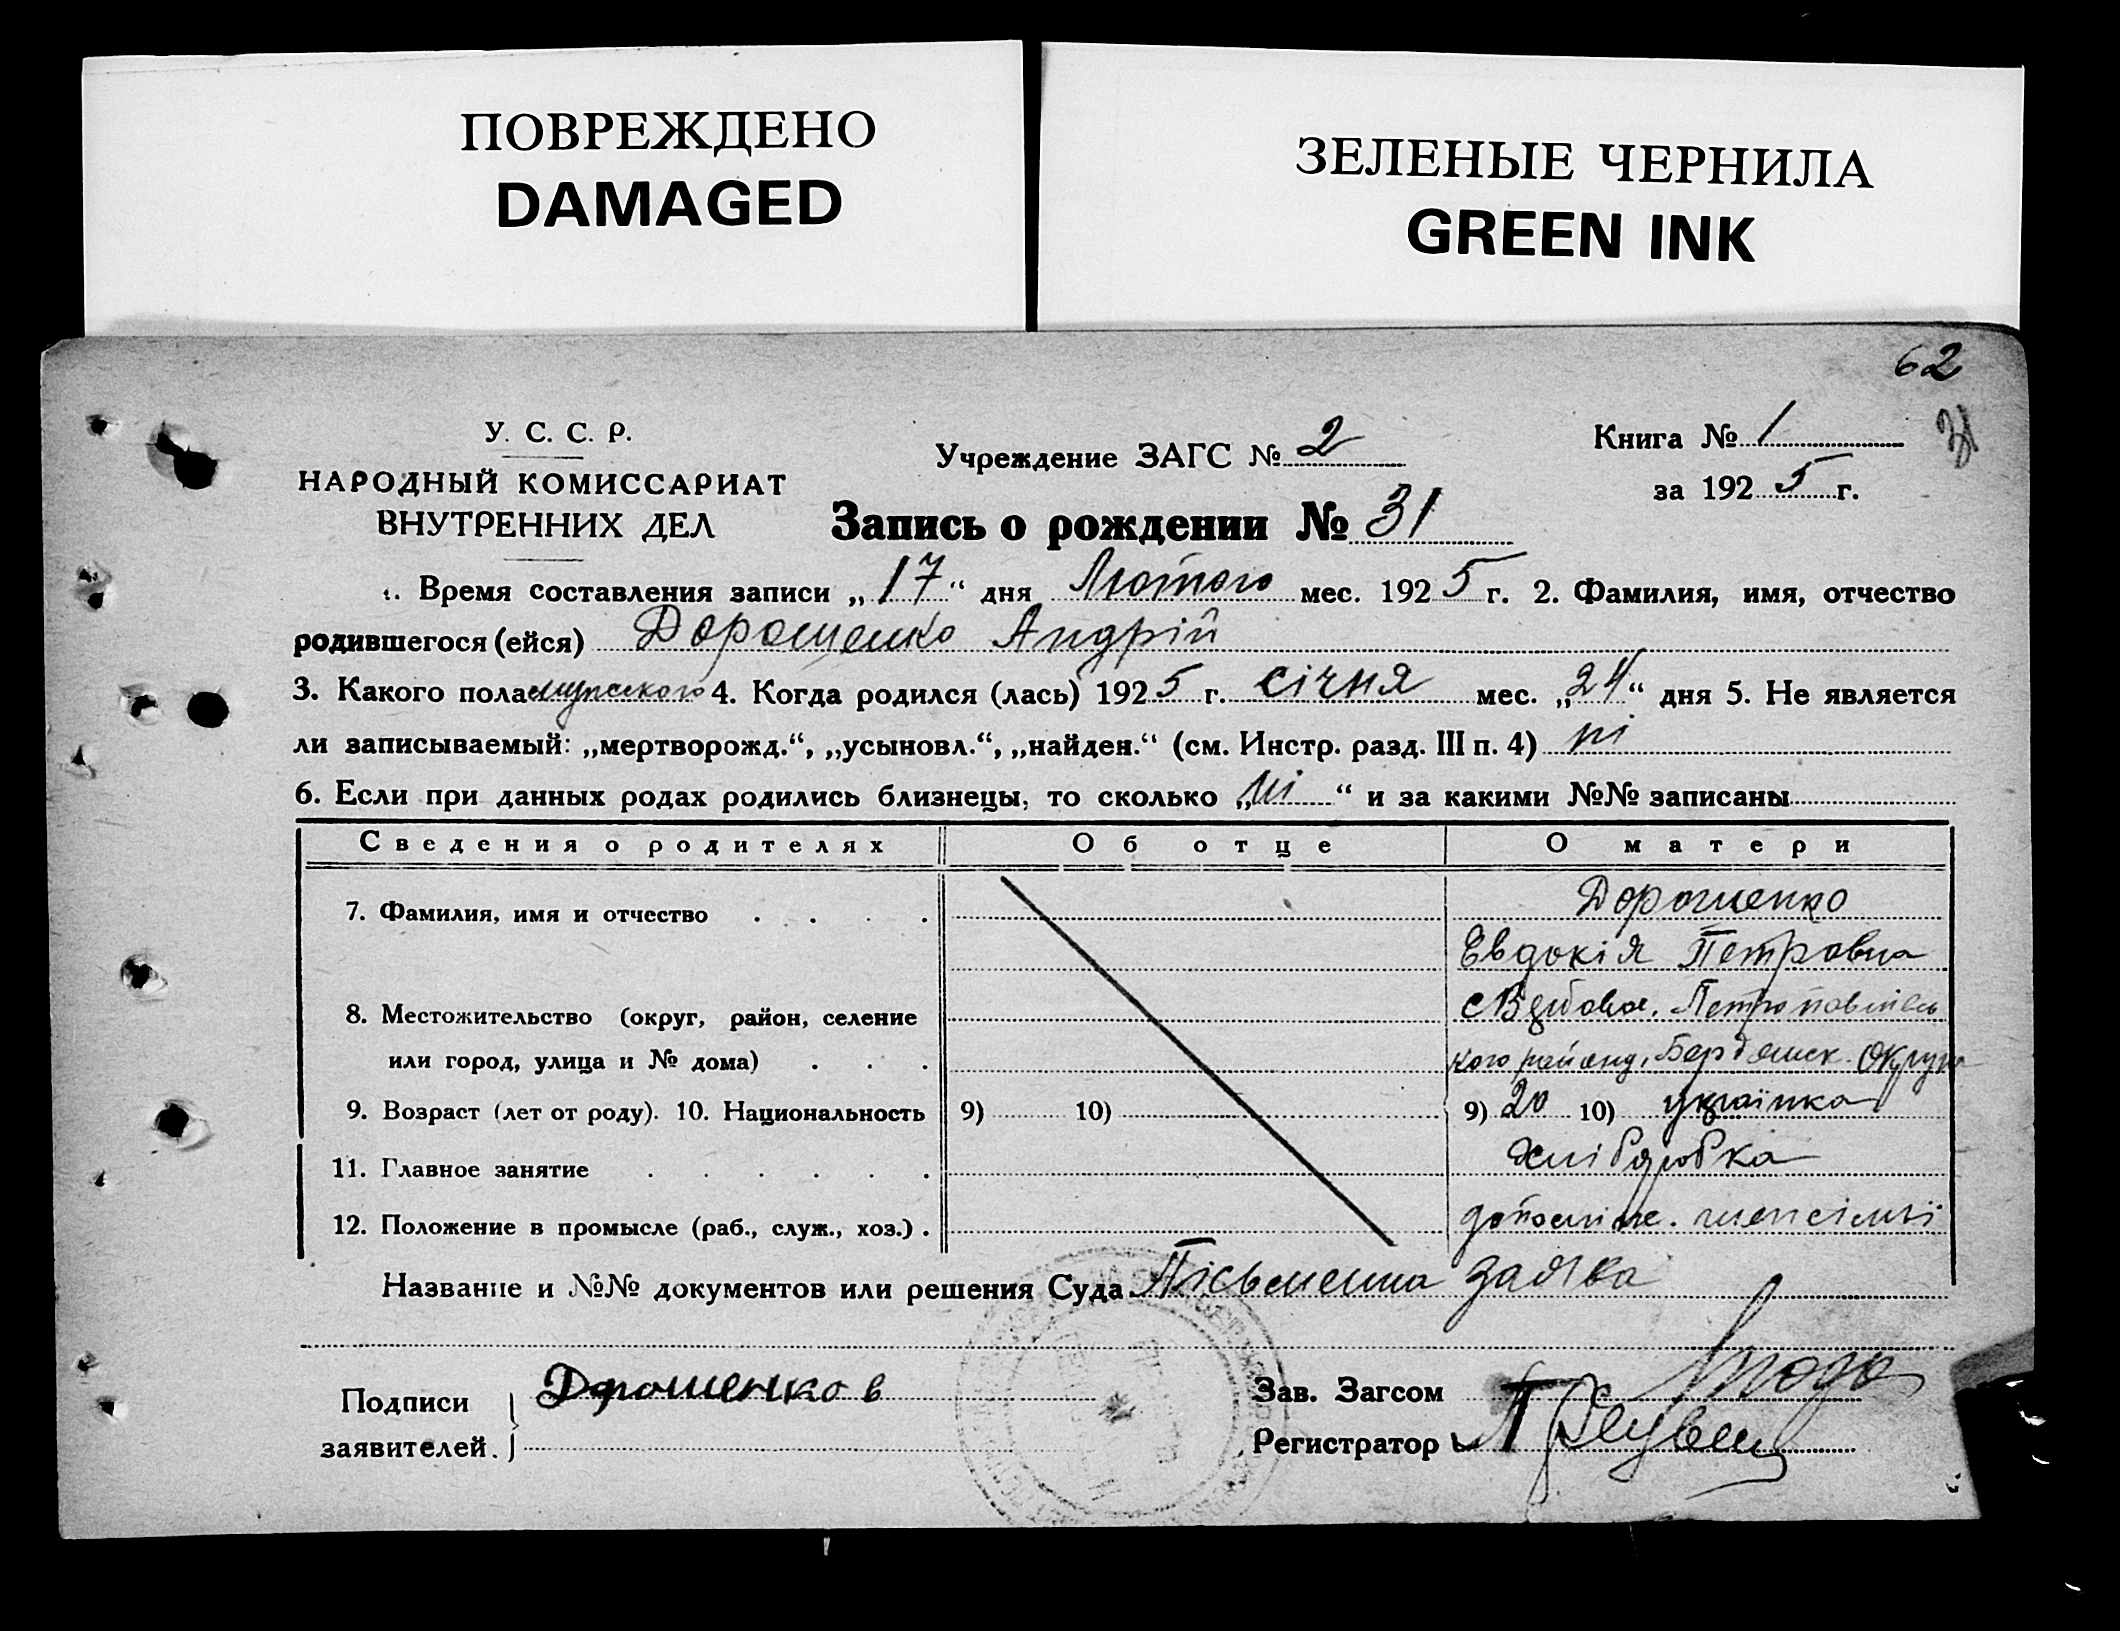 ПОВРЕЖДЕНО
DAMAGED
ЗЕЛЕНЫЕ ЧЕРНИЛА
GREEN INK
62
31
У. С. С. Р.
НАРОДНЫЙ КОМИССАРИАТ
ВНУТРЕННИХ ДЕЛ
Учреждение ЗАГС № 2
Книга № 1
за 1925 г.
Запись о рождении № 31
1. Время составления записи „17“ дня Лютого мес. 1925 г. 2. Фамилия, имя, отчество
родившегося (ейся) Дорошенко Андрій
3. Какого пола мужского 4. Когда родился (лась) 1925 г. січня мес. „24“ дня 5. Не является
ли записываемый: „мертворожд.“, „усыновл.“, „найден.“ (см. Инстр. разд. III п. 4) ні
6. Если при данных родах родились близнецы, то сколько „ні“ и за какими №№ записаны
Сведения о родителях Об отце О матери
7. Фамилия, имя и отчество Дорошенко
Евдокія Петровна
8. Местожительство (округ, район, селение
или город, улица и № дома) кого району, Бердянск. Округи
9. Возраст (лет от роду). 10. Национальность 9) 10) 9) 20 10) українка
11. Главное занятие
12. Положение в промысле (раб., служ., хоз.)
Название и №№ документов или решения Суда Пісьменна заява
Подписи
заявителей. Дорошенков
Зав. Загсом
Регистратор